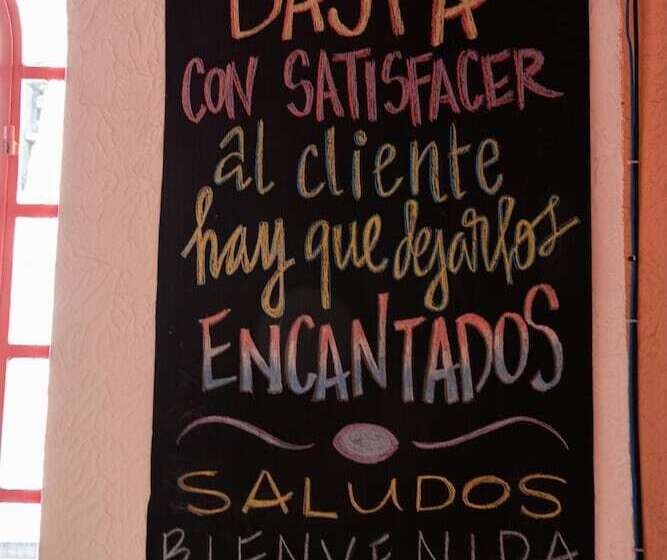 BASTA
CON SATISFACER
al cliente
hay que dejarlos
ENCANTADOS
SALUDOS
BIENVENIDA